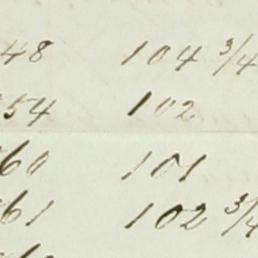 48 104 3/4
54 102
60 101
61 102 3/4